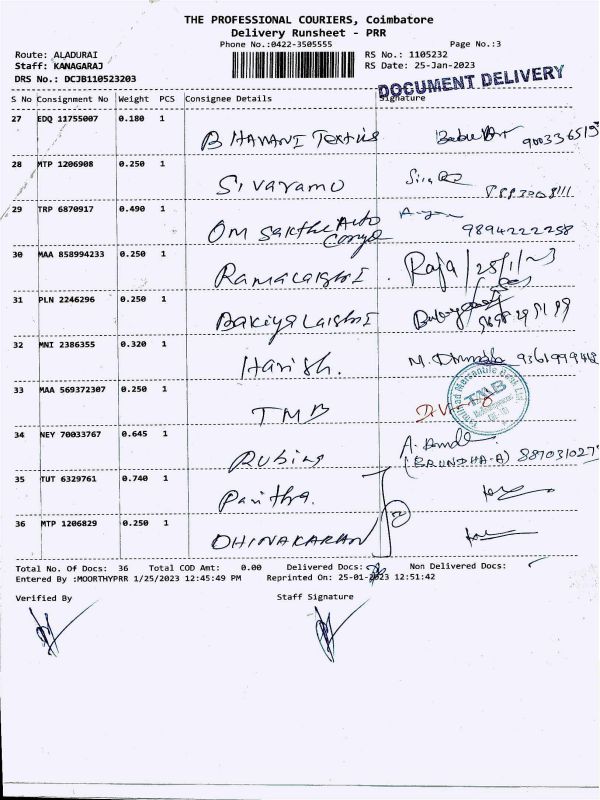 THE PROFESSIONAL COURIERS, Coimbatore
Delivery Runsheet - PRR
Phone No.:0422-3505555 Page No.:3
Route: ALADURAI RS No.: 1105232
Staff: KANAGARAJ RS Date: 25-Jan-2023
DRS No.: DCJB110523203
DOCUMENT DELIVERY
S No Consignment No Weight PCS Consignee Details Signature
27 EDQ 11755007 0.180 1
BHAVANI Textiles
28 MTP 1206908 0.250 1
Sivaramu
29 TRP 6870917 0.490 1
OM Sakthi Auto 9894222258
30 MAA 858994233 0.250 1
Ramalaishmi Raja/25/1/23
31 PLN 2246296 0.250 1
32 MNI 2386355 0.320 1
Harish.
33 MAA 569372307 0.250 1
TMB
TMB
34 NEY 70033767 0.645 1
Rubing (BRUNDHA-A)
35 TUT 6329761 0.740 1
Pavithra.
36 MTP 1206829 0.250 1
DHINAKARAN
Total No. Of Docs: 36 Total COD Amt: 0.00 Delivered Docs: Non Delivered Docs:
Entered By :MOORTHYPRR 1/25/2023 12:45:49 PM Reprinted On: 25-01-2023 12:51:42
Verified By Staff Signature